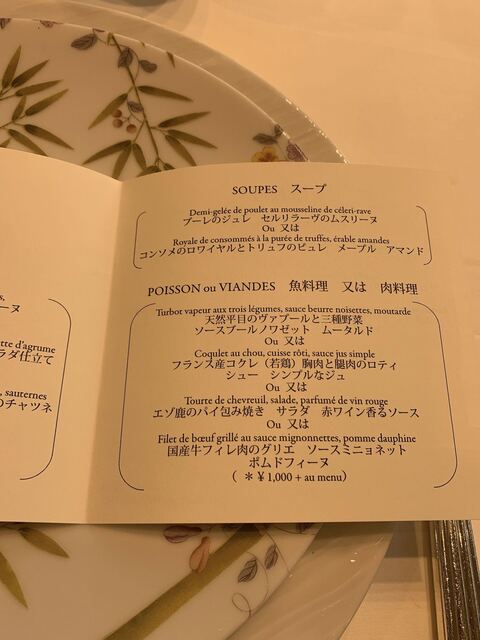 s,
ーヌ
tte d'agrume
ラダ仕立て
, sauternes
のチャツネ
SOUPES スープ
Demi-gelée de poulet au mousseline de céleri-rave
プーレのジュレ セルリラーヴのムスリーヌ
Ou 又は
Royale de consommés à la purée de truffes, érable amandes
コンソメのロワイヤルとトリュフのピュレ メープル アマンド
POISSON ou VIANDES 魚料理 又は 肉料理
Turbot vapeur aux trois légumes, sauce beurre noisettes, moutarde
天然平目のヴァプールと三種野菜
ソースブールノワゼット ムータルド
Ou 又は
Coquelet au chou, cuisse rôti, sauce jus simple
フランス産コクレ（若鶏）胸肉と腿肉のロティ
シュー シンプルなジュ
Ou 又は
Tourte de chevreuil, salade, parfumé de vin rouge
エゾ鹿のパイ包み焼き サラダ 赤ワイン香るソース
Ou 又は
Filet de bœuf grillé au sauce mignonnettes, pomme dauphine
国産牛フィレ肉のグリエ ソースミニョネット
ポムドフィーヌ
（ ＊￥1,000 + au menu）